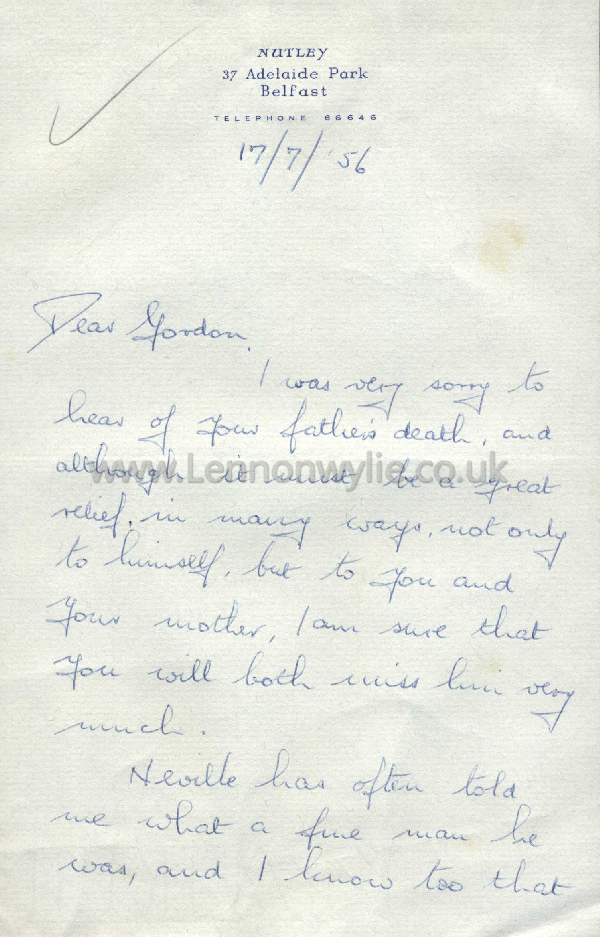 NUTLEY
37 Adelaide Park
Belfast
TELEPHONE 66646
17/7/'56
Dear Gordon,
I was very sorry to
hear of your father's death, and
although it must be a great
www.Lennonwylie.co.uk
relief, in many ways, not only
to himself, but to you and
your mother, I am sure that
you will both miss him very
much.
Neville has often told
me what a fine man he
was, and I know too that